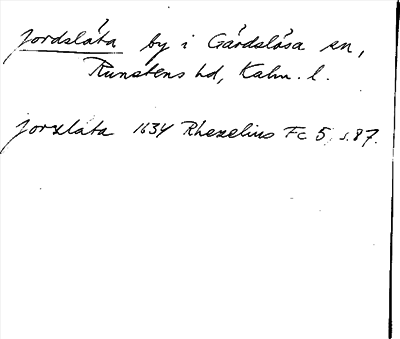 Jordslåta by i Gärdslösa sn,
Runstens hd, Kalm. l.
Jorxlata 1634 Rhezelius Fc 5, s. 87.